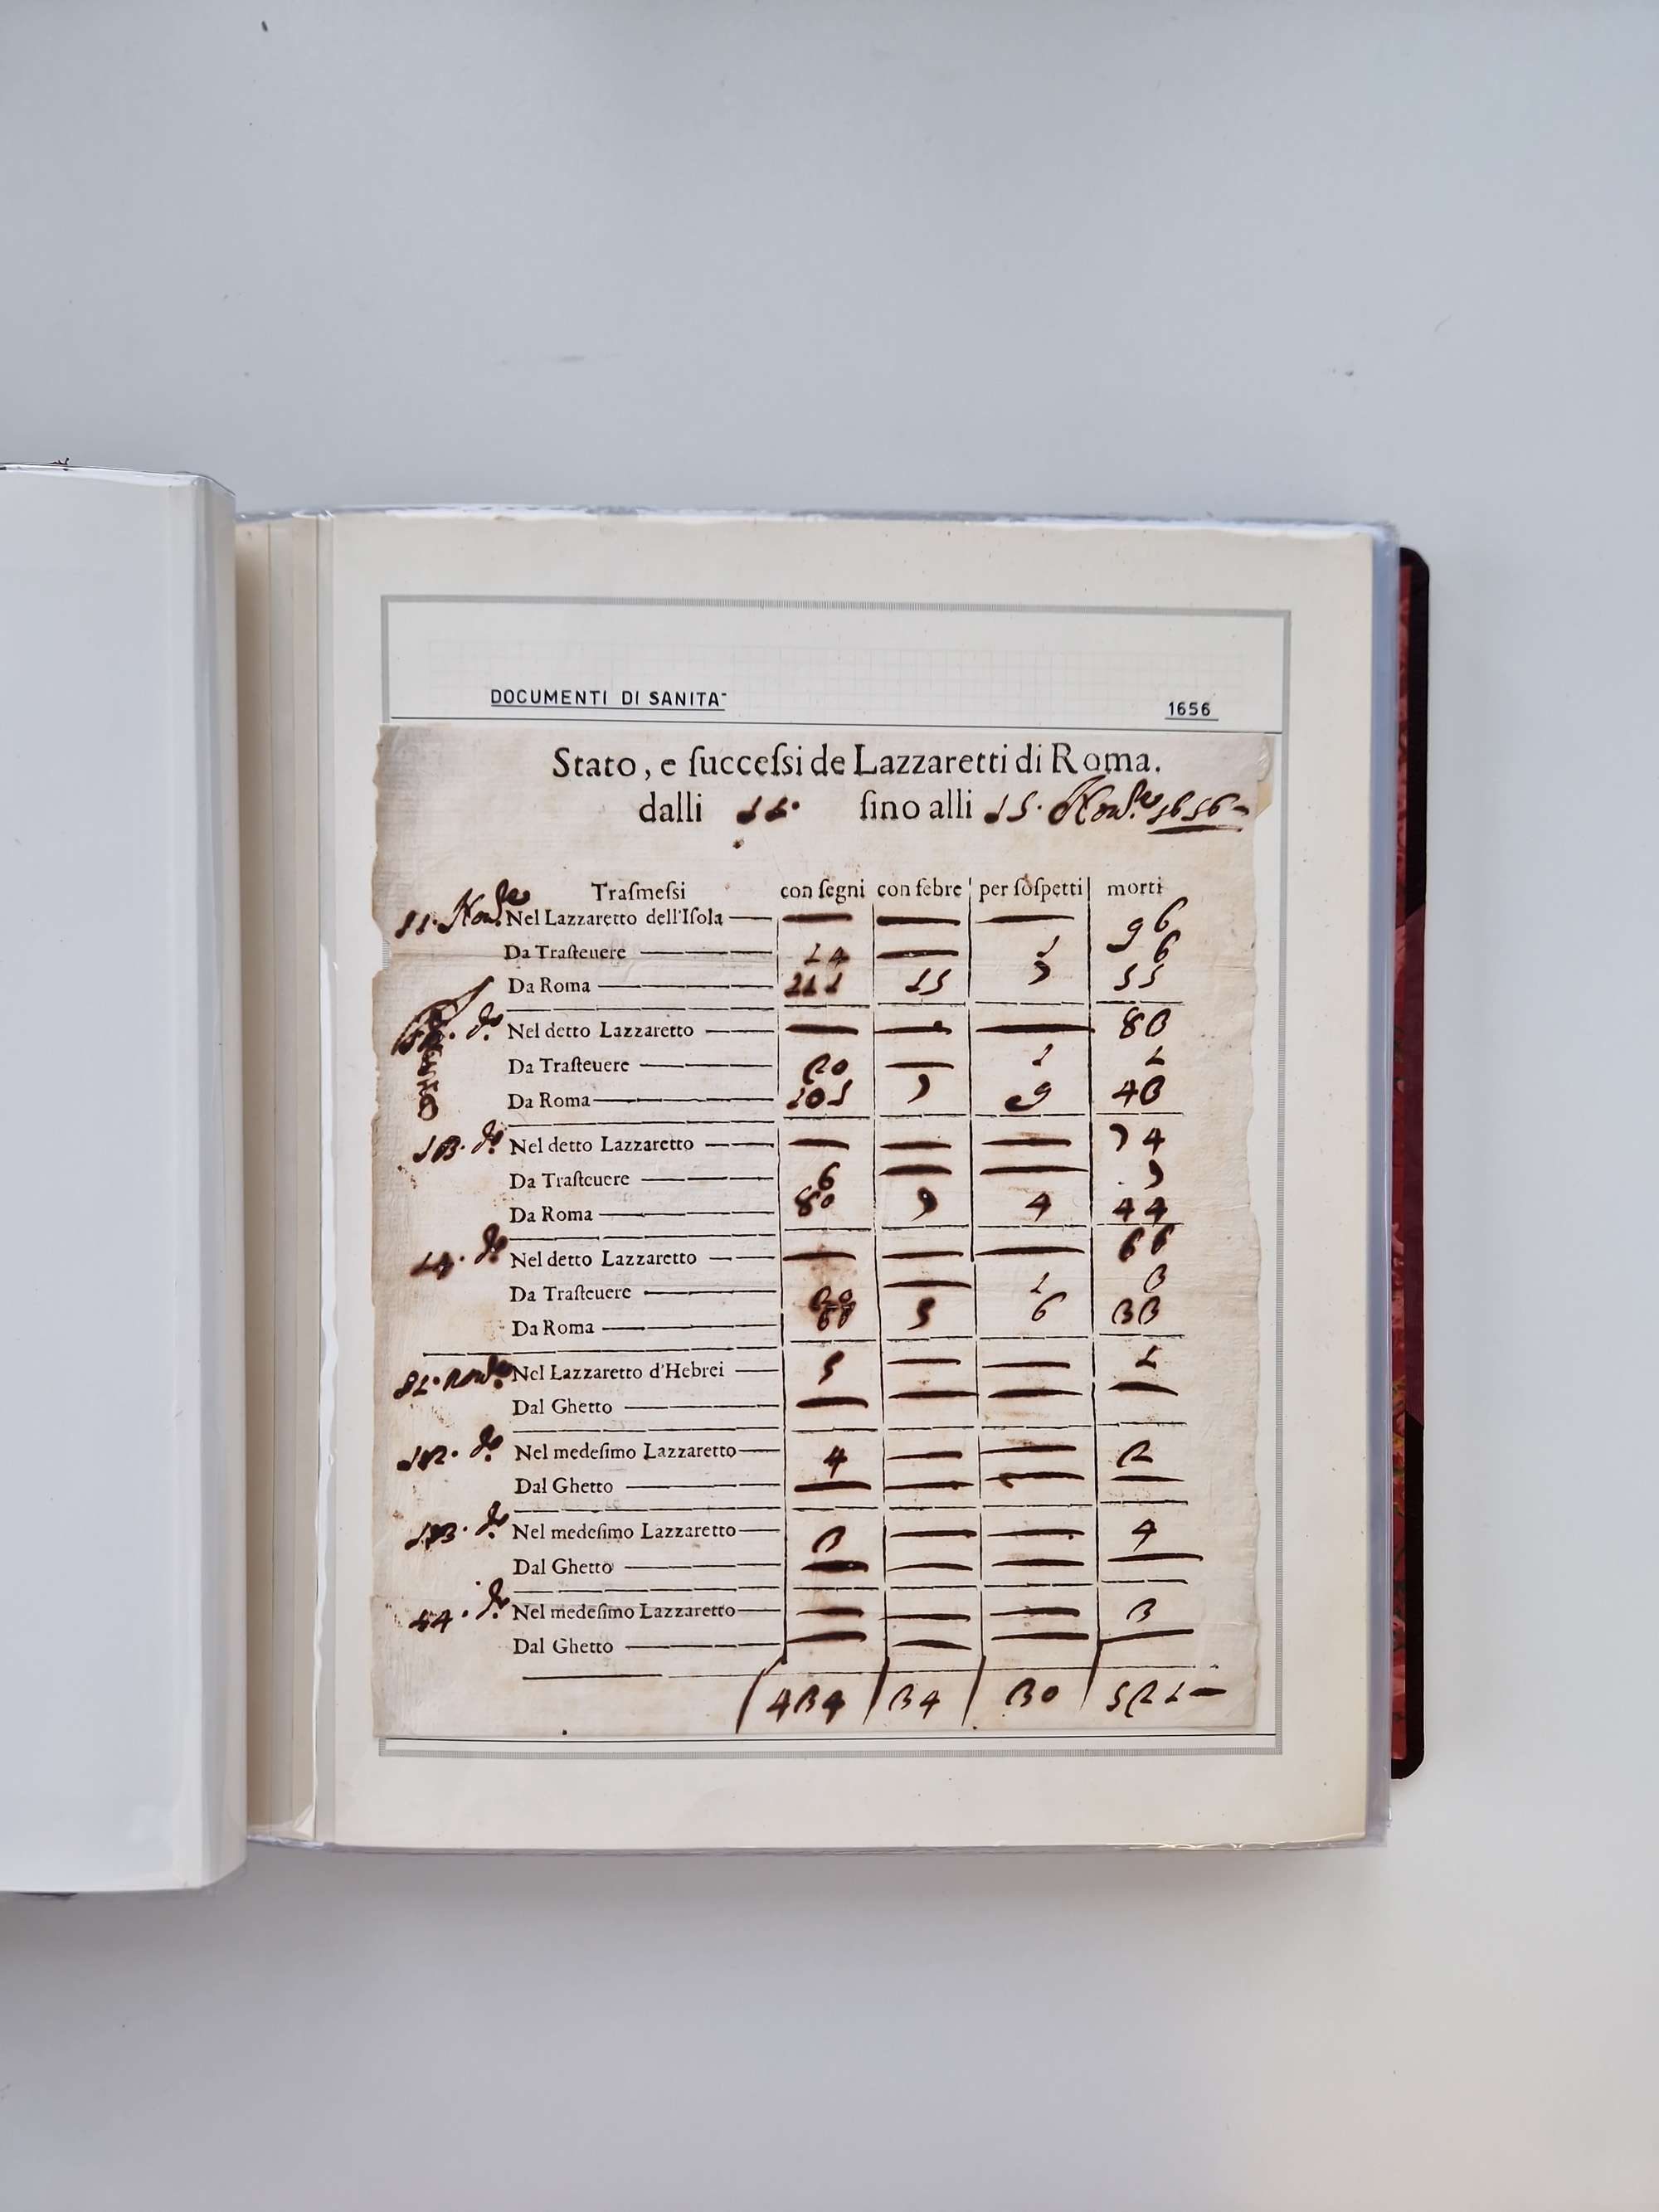 DOCUMENTI DI SANITA'
1656
Stato, e ſucceſsi de Lazzaretti di Roma.
dalli 11. ſino alli 15. Nou.re 1656
Traſmeſsi con ſegni con febre per ſoſpetti morti
11. Nou.re Nel Lazzaretto dell'Iſola — — — 96
Da Traſteuere 14 — 1 6
Da Roma 211 15 7 55
12. d.o Nel detto Lazzaretto — — — 83
Da Traſteuere 20 — 1 1
Da Roma 101 7 9 43
13. d.o Nel detto Lazzaretto — — — 74
Da Traſteuere 6 — — 7
Da Roma 80 7 4 44
14. d.o Nel detto Lazzaretto — — — 66
Da Traſteuere — 1 3
Da Roma 5 6 33
11. Nou.re Nel Lazzaretto d'Hebrei 5 — — 1
Dal Ghetto — — — —
12. d.o Nel medeſimo Lazzaretto 4 — — 2
Dal Ghetto — — — —
13. d.o Nel medeſimo Lazzaretto 3 — — 4
Dal Ghetto — — — —
14. d.o Nel medeſimo Lazzaretto — — — 3
Dal Ghetto — — — —
434 34 30 521